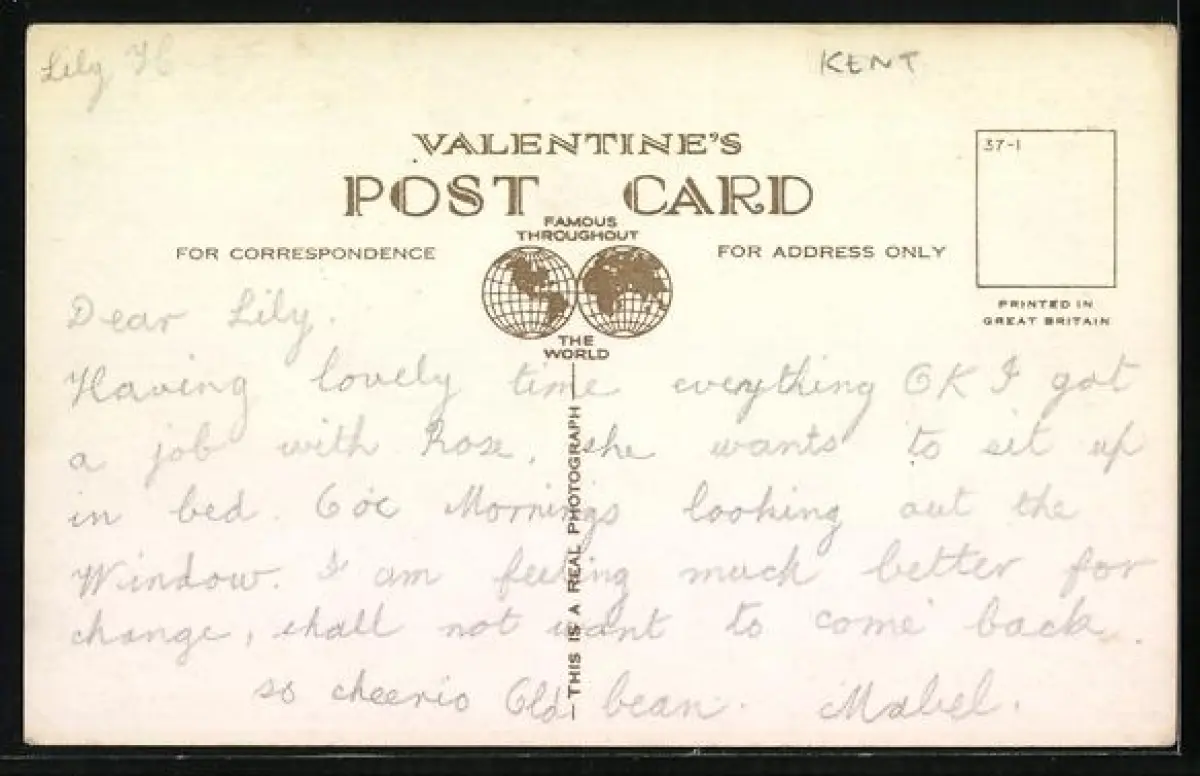 Lily H
KENT
VALENTINE'S
POST CARD
37-1
FAMOUS
THROUGHOUT
FOR CORRESPONDENCE
FOR ADDRESS ONLY
THE
WORLD
PRINTED IN
GREAT BRITAIN
THIS IS A REAL PHOTOGRAPH
Dear Lily.
Having lovely time everything OK I got
a job with Rose, she wants to sit up
in bed. 6 oc Mornings looking out the
Window. I am feeling much better for
change, shall not want to come back.
so cheerio Old bean. Mabel.